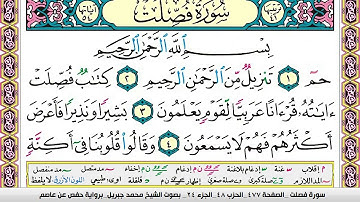 سُورَةُ فُصِّلَتْ
بِسْمِ ٱللَّهِ ٱلرَّحْمَٰنِ ٱلرَّحِيمِ
حمٓ ١ تَنزِيلٌ مِّنَ ٱلرَّحْمَٰنِ ٱلرَّحِيمِ ٢ كِتَٰبٌ فُصِّلَتْ
ءَايَٰتُهُۥ قُرْءَانًا عَرَبِيًّا لِّقَوْمٍ يَعْلَمُونَ ٣ بَشِيرًا وَنَذِيرًا فَأَعْرَضَ
أَكْثَرُهُمْ فَهُمْ لَا يَسْمَعُونَ ٤ وَقَالُوا۟ قُلُوبُنَا فِىٓ أَكِنَّةٍ
سورة فصلت - الصفحة ٤٧٧ - الحزب ٤٨ - الجزء ٢٤ - بصوت الشيخ محمد جبريل - برواية حفص عن عاصم